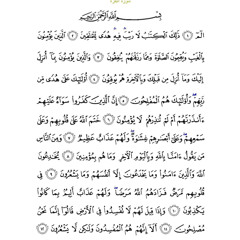 بِسْمِ ٱللَّهِ ٱلرَّحْمَٰنِ ٱلرَّحِيمِ
الٓمٓ ١ ذَٰلِكَ ٱلْكِتَٰبُ لَا رَيْبَ فِيهِ هُدًى لِّلْمُتَّقِينَ ٢ ٱلَّذِينَ يُؤْمِنُونَ
بِٱلْغَيْبِ وَيُقِيمُونَ ٱلصَّلَوٰةَ وَمِمَّا رَزَقْنَٰهُمْ يُنفِقُونَ ٣ وَٱلَّذِينَ يُؤْمِنُونَ بِمَآ أُنزِلَ
إِلَيْكَ وَمَآ أُنزِلَ مِن قَبْلِكَ وَبِٱلْءَاخِرَةِ هُمْ يُوقِنُونَ ٤ أُو۟لَٰٓئِكَ عَلَىٰ هُدًى مِّن
رَّبِّهِمْ وَأُو۟لَٰٓئِكَ هُمُ ٱلْمُفْلِحُونَ ٥ إِنَّ ٱلَّذِينَ كَفَرُوا۟ سَوَآءٌ عَلَيْهِمْ
ءَأَنذَرْتَهُمْ أَمْ لَمْ تُنذِرْهُمْ لَا يُؤْمِنُونَ ٦ خَتَمَ ٱللَّهُ عَلَىٰ قُلُوبِهِمْ وَعَلَىٰ
سَمْعِهِمْ وَعَلَىٰٓ أَبْصَٰرِهِمْ غِشَٰوَةٌ وَلَهُمْ عَذَابٌ عَظِيمٌ ٧ وَمِنَ ٱلنَّاسِ
مَن يَقُولُ ءَامَنَّا بِٱللَّهِ وَبِٱلْيَوْمِ ٱلْءَاخِرِ وَمَا هُم بِمُؤْمِنِينَ ٨ يُخَٰدِعُونَ ٱللَّهَ
وَٱلَّذِينَ ءَامَنُوا۟ وَمَا يَخْدَعُونَ إِلَّآ أَنفُسَهُمْ وَمَا يَشْعُرُونَ ٩ فِى
قُلُوبِهِم مَّرَضٌ فَزَادَهُمُ ٱللَّهُ مَرَضًا وَلَهُمْ عَذَابٌ أَلِيمٌۢ بِمَا كَانُوا۟
يَكْذِبُونَ ١٠ وَإِذَا قِيلَ لَهُمْ لَا تُفْسِدُوا۟ فِى ٱلْأَرْضِ قَالُوٓا۟ إِنَّمَا نَحْنُ
مُصْلِحُونَ ١١ أَلَآ إِنَّهُمْ هُمُ ٱلْمُفْسِدُونَ وَلَٰكِن لَّا يَشْعُرُونَ ١٢